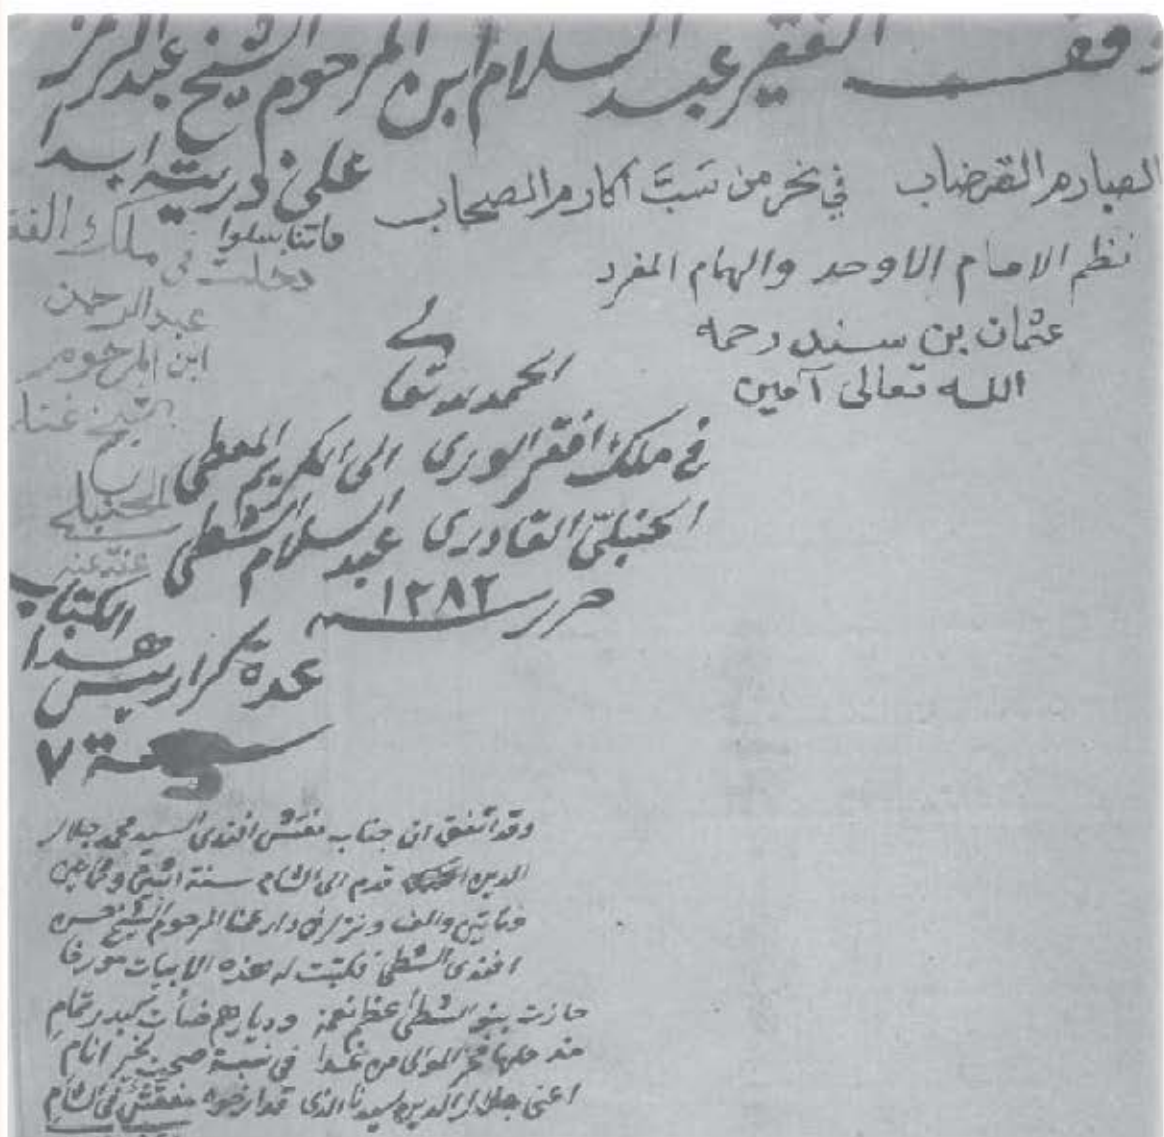 وقف الفقير عبد السلام ابن المرحوم الشيخ عبد الرحمن
على ذريته ابدا
ماتناسلوا
الصارم القرضاب في نحر من سَبَّ أكارم الاصحاب
نظم الامام الاوحد والهمام المفرد
عثمان بن سند رحمه
الله تعالى آمين
دخلت في ملك الفقير
عبد الرحمن
ابن المرحوم
الشيخ
الحنبلي
عفي عنه
الحمد لله تعالى
في ملك افقر الورى الى الكريم المعطي
الحنبلي القادري عبد السلام الشطي
حرر سنة ١٢٨٢
عدة كراريس هذا الكتاب
سبعة ٧
وقد اتفق ان جناب مفتش افندي السيد محمد جلال
الدين قدم الى الشام سنة اثنتين وثمانين
ومائتين والف ونزل في دار عمنا المرحوم الشيخ حسن
افندي الشطي فكتبت له هذه الابيات مورخا
حازت بنو الشطي اعظم نعمة وديارهم ضأت كبدر تمام
مذ حلها فخر الموالي من غدا في نسبة صحت لخير انام
اعني جلال الدين سيدنا الذي قد ارخوه مفتش في الشام